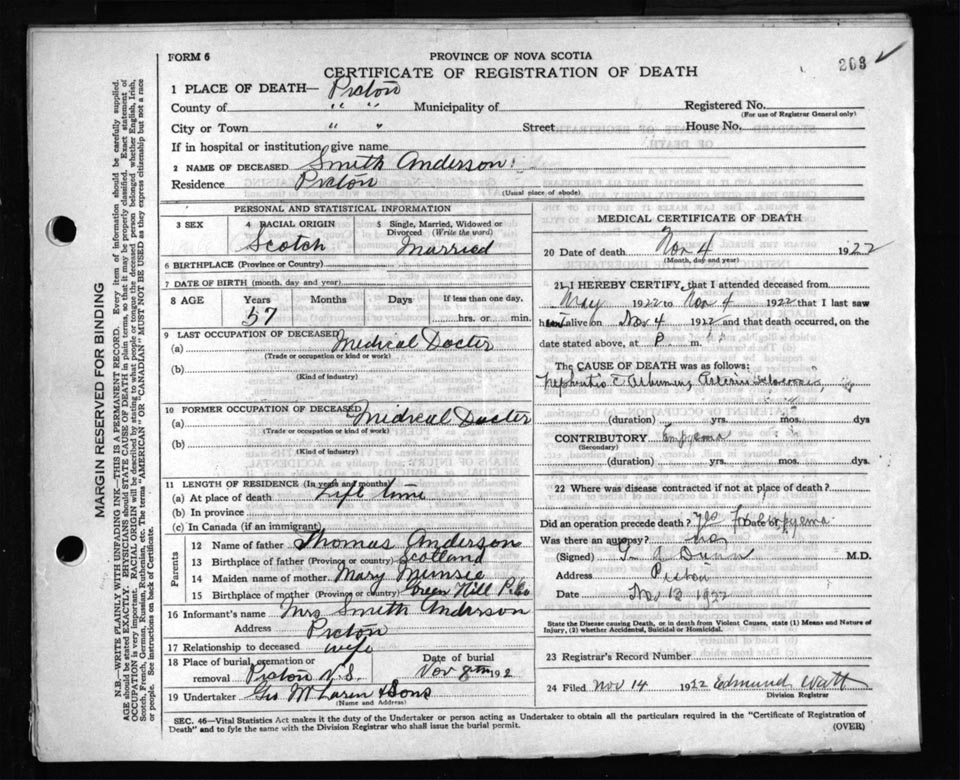 FORM 6
PROVINCE OF NOVA SCOTIA
209
CERTIFICATE OF REGISTRATION OF DEATH
1 PLACE OF DEATH— Pictou
County of " " Municipality of Registered No.
(For use of Registrar General only)
City or Town " " Street House No.
If in hospital or institution, give name
2 NAME OF DECEASED Smith Anderson
Residence Pictou
(Usual place of abode)
PERSONAL AND STATISTICAL INFORMATION
3 SEX
4 RACIAL ORIGIN
Scotch
5 Single, Married, Widowed or Divorced (Write the word)
Married
6 BIRTHPLACE (Province or Country)
7 DATE OF BIRTH (month, day, and year)
8 AGE Years Months Days If less than one day,
57 hrs. or min.
9 LAST OCCUPATION OF DECEASED
(a) Medical Docter
(Trade or occupation or kind of work)
(b)
(Kind of industry)
10 FORMER OCCUPATION OF DECEASED
(a) Medical Docter
(Trade or occupation or kind of work)
(b)
(Kind of industry)
11 LENGTH OF RESIDENCE (In years and months)
(a) At place of death Life time
(b) In province
(c) In Canada (if an immigrant)
Parents
12 Name of father Thomas Anderson
13 Birthplace of father (Province or country) Scotland
14 Maiden name of mother Mary Munsie
15 Birthplace of mother (Province or country) Green Hill P. Co
16 Informant's name Mrs Smith Anderson
Address Pictou
17 Relationship to deceased wife
18 Place of burial, cremation or removal Pictou N.S.
Date of burial Nov 8th 192
19 Undertaker Geo McLaren & Sons
(Name and Address)
MEDICAL CERTIFICATE OF DEATH
20 Date of death Nov 4 1922
(Month, day and year)
21 I HEREBY CERTIFY, that I attended deceased from
May 1922 to Nov 4 1922 that I last saw
him alive on Nov 4 1922 and that death occurred, on
date stated above, at P m.
The CAUSE OF DEATH was as follows:
(duration) yrs. mos. dys
CONTRIBUTORY Empyema
(Secondary)
(duration) yrs. mos. dys.
22 Where was disease contracted if not at place of death?
Did an operation precede death? Yes Date of for Empyema
Was there an autopsy? no
(Signed) Dunn M.D.
Address Pictou
Date Nov 12 1922
State the Disease causing Death, or in death from Violent Causes, state (1) Means and Nature of
Injury, (2) whether Accidental, Suicidal or Homicidal.
23 Registrar's Record Number
24 Filed Nov 14 1922 Edmund Watt
Division Registrar
SEC. 46—Vital Statistics Act makes it the duty of the Undertaker or person acting as Undertaker to obtain all the particulars required in the "Certificate of Registration of
Death" and to fyle the same with the Division Registrar who shall issue the burial permit.
(OVER)
MARGIN RESERVED FOR BINDING
N.B.—WRITE PLAINLY WITH UNFADING INK—THIS IS A PERMANENT RECORD. Every item of information should be carefully supplied.
AGE should be stated EXACTLY. PHYSICIANS should STATE CAUSE OF DEATH in plain terms, so that it may be properly classified. Exact statement of
OCCUPATION is very important. RACIAL ORIGIN will be described by stating to what people or tongue the deceased person belonged whether English, Irish,
Scotch, French, German, Russian, Ruthenian, etc. The terms "AMERICAN" OR "CANADIAN" MUST NOT BE USED as they express citizenship but not a race
or people. See instructions on back of Certificate.